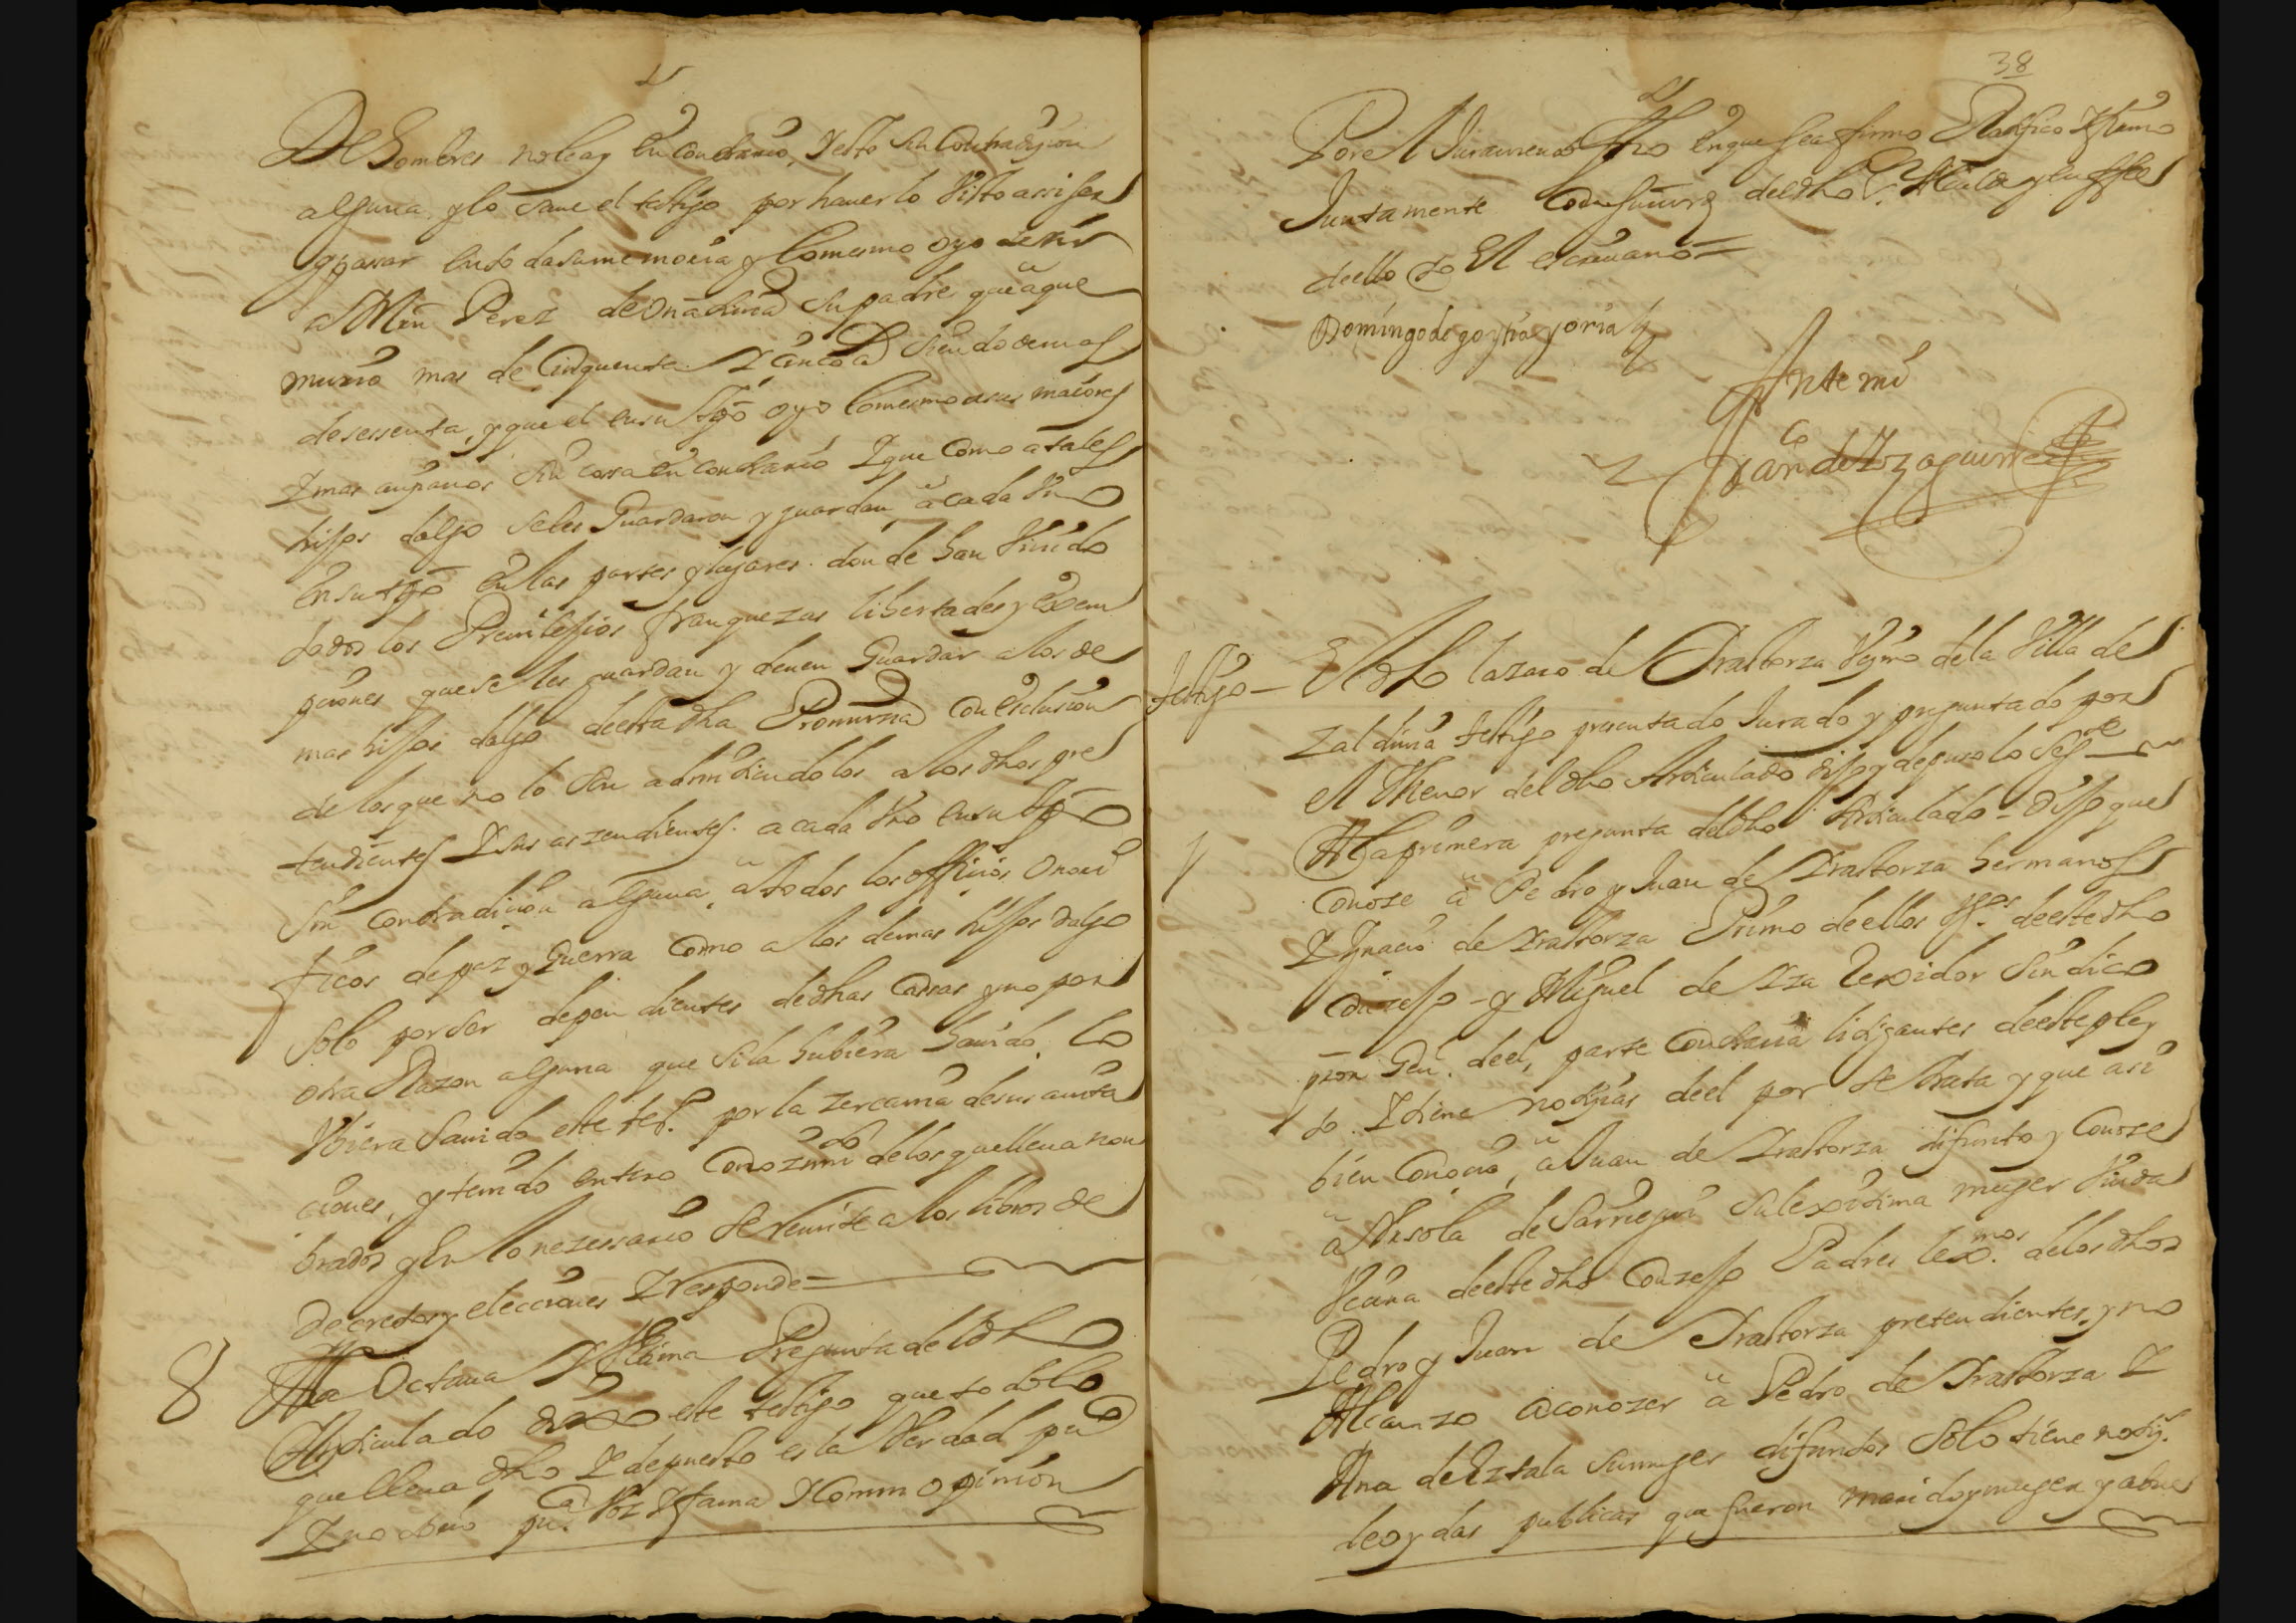 De hombres nobles en contrario, Y esto sin contradicion
alguna, y lo saue el testigo por hauerlo Visto assi ser
y passar en todo da su memoria y lo mesmo oyo dezir
a Mrn Perez de Onachuria su padre que a que
murio mas de Cinquenta Y cinco a siendo de mas
de sessenta, y que el en su tpo oyo lo mesmo a sus maiores
Y mas anzianos sin cossa en contrario Y que Como a tales
hissos dalgo se les Guardaron y guardan, a cada Vno
en su tpo en las partes y lugares donde han Viuido
todos los Preuilessios franquezas libertades y exem
pciones que se les guardan y deuen Guardar a los de
mas hissos dalgo de esta dha Prouinzia con esclusion
de los que no lo son admitiendolos a los dhos pre
tendientes Y sus aszendientes a cada Vno en su tpo
sin contradicion alguna, a todos los offiçios onori
ficos de paz y Guerra Como a los demas hissos dalgo
Solo por ser dependientes de dhas Cassas y no por
otra Razon alguna que si la hubiera hauido, lo
Vbiera sauido este tes. por la zercania de sus
ciones, y tenido entero Conozimdo de los que lleua nom
brados y en lo nezessario se remite a los libros de
decretos y elecciones Y responde =
8 A la Octaua Y Vltima Pregunta del dho
Articulado dixo este testigo que todo lo
que lleua dho Y depuesto es la Verdad pu
Y notorio puca Voz Y fama Y Comun opinion
38
Por el Juramento fho en que se afirmo Ratifico Y firmo
Juntamente Con su mrd del dho S. Alcalde y en ffee
de ello yo El escriuano =
Domingo de goytia y oria
Ante mi
Franco de Yzaguirre
testigo - El dho lazaro de Yrastorza Vezino de la Villa de
Zaldiuia testigo presentado Jurado y preguntado por
el Thenor del dho Articulado disso y depuso lo Sigte
1 A la primera pregunta del dho Articulado - Disso que
Conoze a Pedro y Juan de Yrastorza hermanos
Y Ygnacio de Yrastorza Primo de ellos Vzos de este dho
Conzesso - y Miguel de Yza Rexidor Sindico
pror Gen. de el, parte Contraria litigantes de este pley
to. Y tiene notiçias de el por se trata y que assi
bien Conocio, a Juan de Yrastorza difunto y Conoze
a Vrsola de Sarriegui su lexitima muger Viuda
Vezina de este dho Conzesso Padres lexmos de los dhos
Pedro y Juan de Yrastorza pretendientes, y no
Alcanzo a conozer a Pedro de Yrastorza Y
Ana de Yztala su muger difuntos Solo tiene notiz.
de oydas publicas que fueron marido y muger y abue